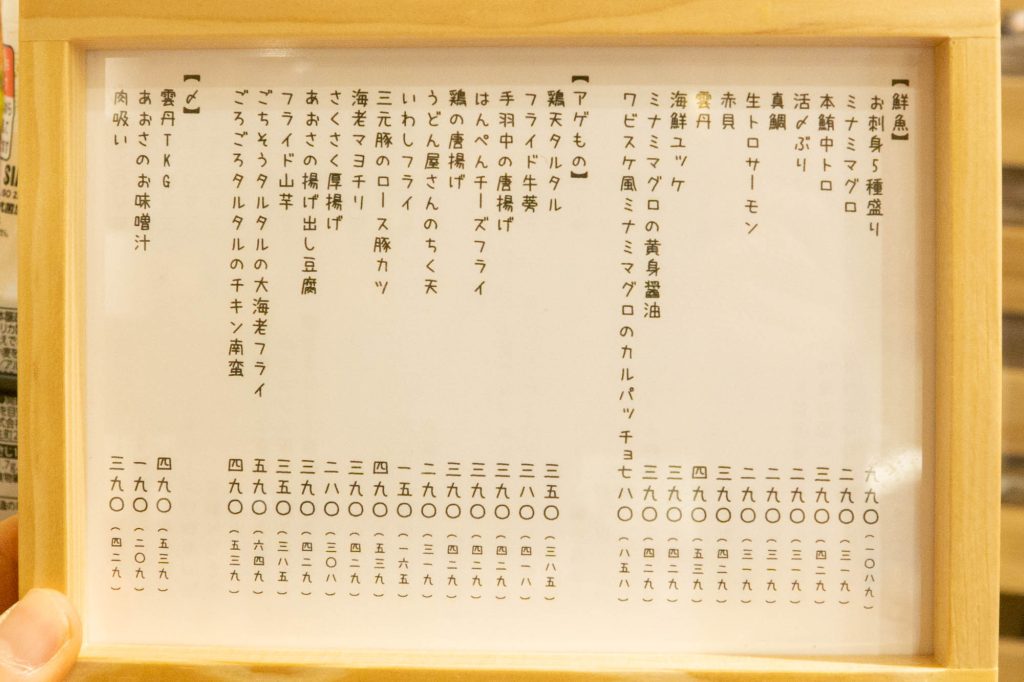 【鮮魚】
お刺身5種盛り 九九〇(一〇八九)
ミナミマグロ 二九〇(三一九)
本鮪中トロ 三九〇(四二九)
活〆ぶり 二九〇(三一九)
真鯛 二九〇(三一九)
生トロサーモン 二九〇(三一九)
赤貝 三九〇(四二九)
雲丹 四九〇(五三九)
海鮮ユッケ 三九〇(四二九)
ミナミマグロの黄身醤油 三九〇(四二九)
ワビスケ風ミナミマグロのカルパッチョ 七八〇(八五八)
【アゲもの】
鶏天タルタル 三五〇(三八五)
フライド牛蒡 三八〇(四一八)
手羽中の唐揚げ 三九〇(四二九)
はんぺんチーズフライ 三九〇(四二九)
鶏の唐揚げ 三九〇(四二九)
うどん屋さんのちく天 二九〇(三一九)
いわしフライ 一五〇(一六五)
三元豚のロース豚カツ 四九〇(五三九)
海老マヨチリ 三九〇(四二九)
さくさく厚揚げ 二八〇(三〇八)
あおさの揚げ出し豆腐 三九〇(四二九)
フライド山芋 三五〇(三八五)
ごちそうタルタルの大海老フライ 五九〇(六四九)
ごろごろタルタルのチキン南蛮 四九〇(五三九)
【〆】
雲丹TKG 四九〇(五三九)
あおさのお味噌汁 一九〇(二〇九)
肉吸い 三九〇(四二九)